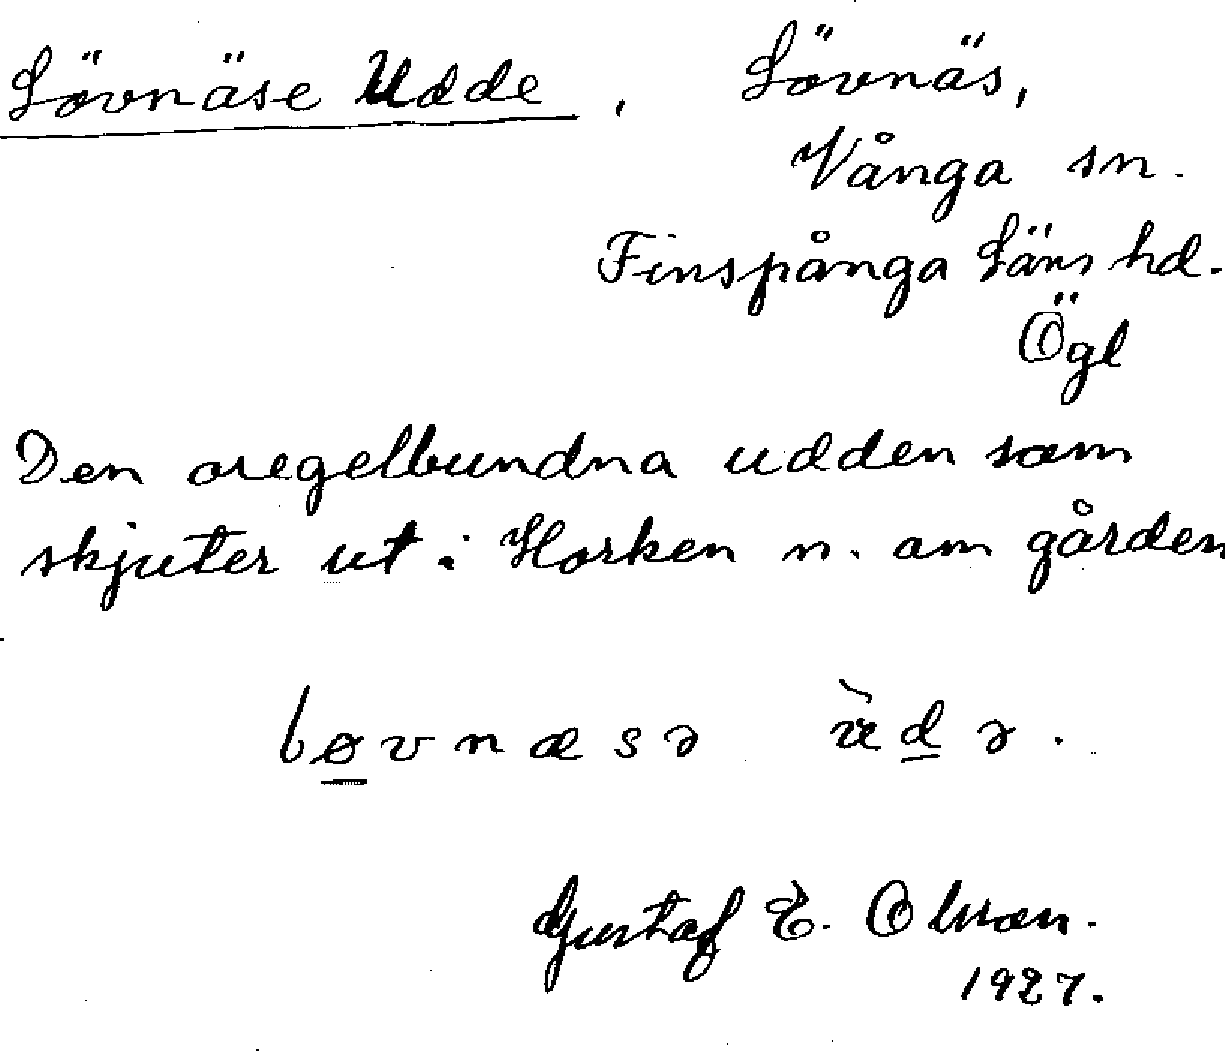 Lövnäse Udde, Lövnäs,
Vånga sn.
Finspånga Läns hd.
Ögl
Den oregelbundna udden som
skjuter ut i Horken n. om gården
løvnæsə ùdə.
Gustaf E. Olsson.
1927.